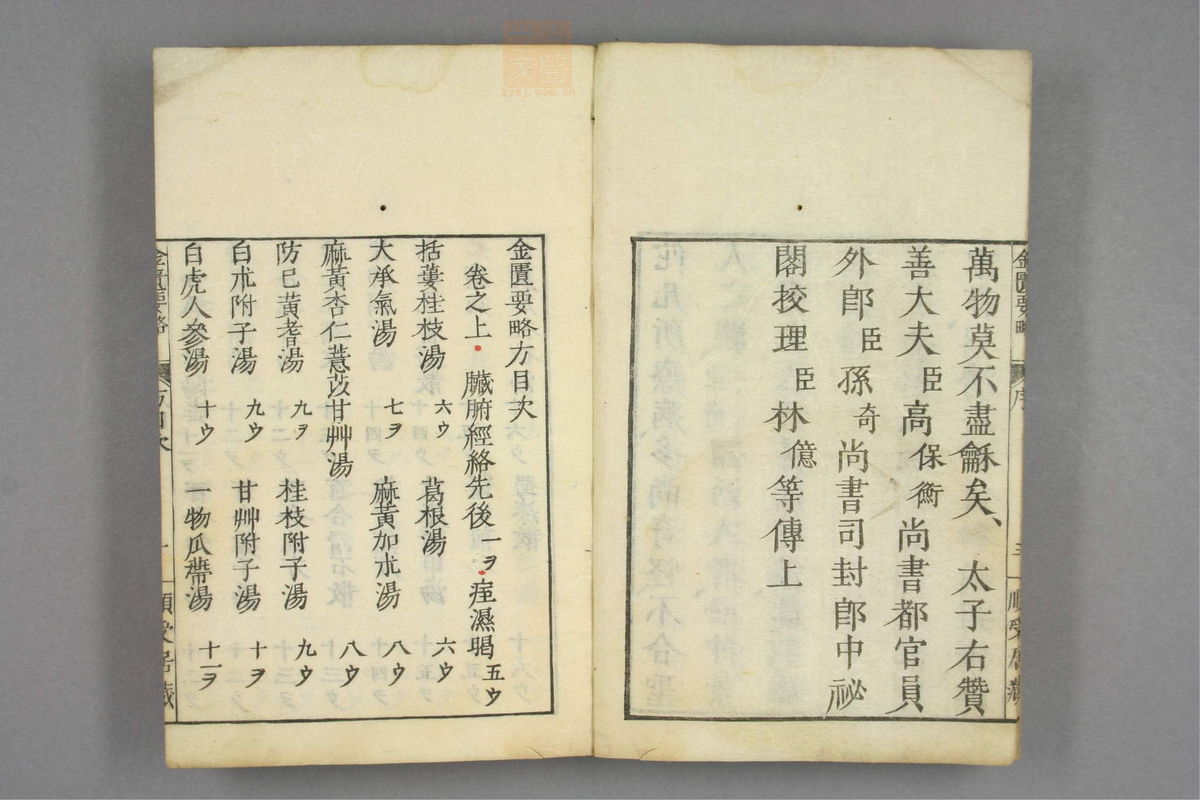 萬物莫不盡龢矣、太子右贊
善大夫臣高保衡尚書都官員
外郎臣孫奇尚書司封郎中祕
閣挍理臣林億等傳上
金匱要略
序
三
順受居藏
金匱要略方目次
卷之上 臟腑經絡先後一ヲ 痓濕暍五ウ
括蔞桂枝湯六ウ 葛根湯六ウ
大承氣湯七ヲ 麻黃加朮湯八ウ
麻黃杏仁薏苡甘艸湯八ウ
防已黃耆湯九ヲ 桂枝附子湯九ウ
白朮附子湯九ウ 甘艸附子湯十ヲ
白虎人參湯十ウ 一物瓜蔕湯十一ヲ
金匱要略
方目次
一
順受居藏
zysj.com.cn